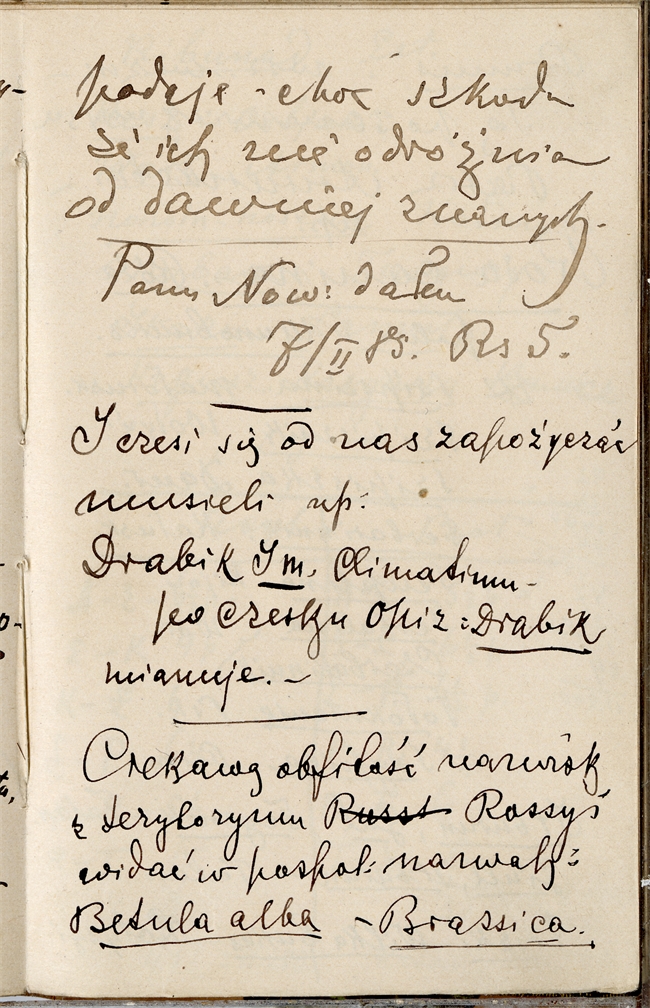 podaje - choć szkoda
że ich nie odróżnia
od dawniej znanych.
Panu Now: dałem
7/II 85. Rs 5.
I czesi się od nas zapożyczać
musieli np:
Drabik Im. Climatium -
po czesku Opiz: Drabik
mianuje. -
Ciekawą obfitość nazwisk
z terytoryum Russi Rossyi
widać w pospol: nazwach:
Betula alba - Brassica.